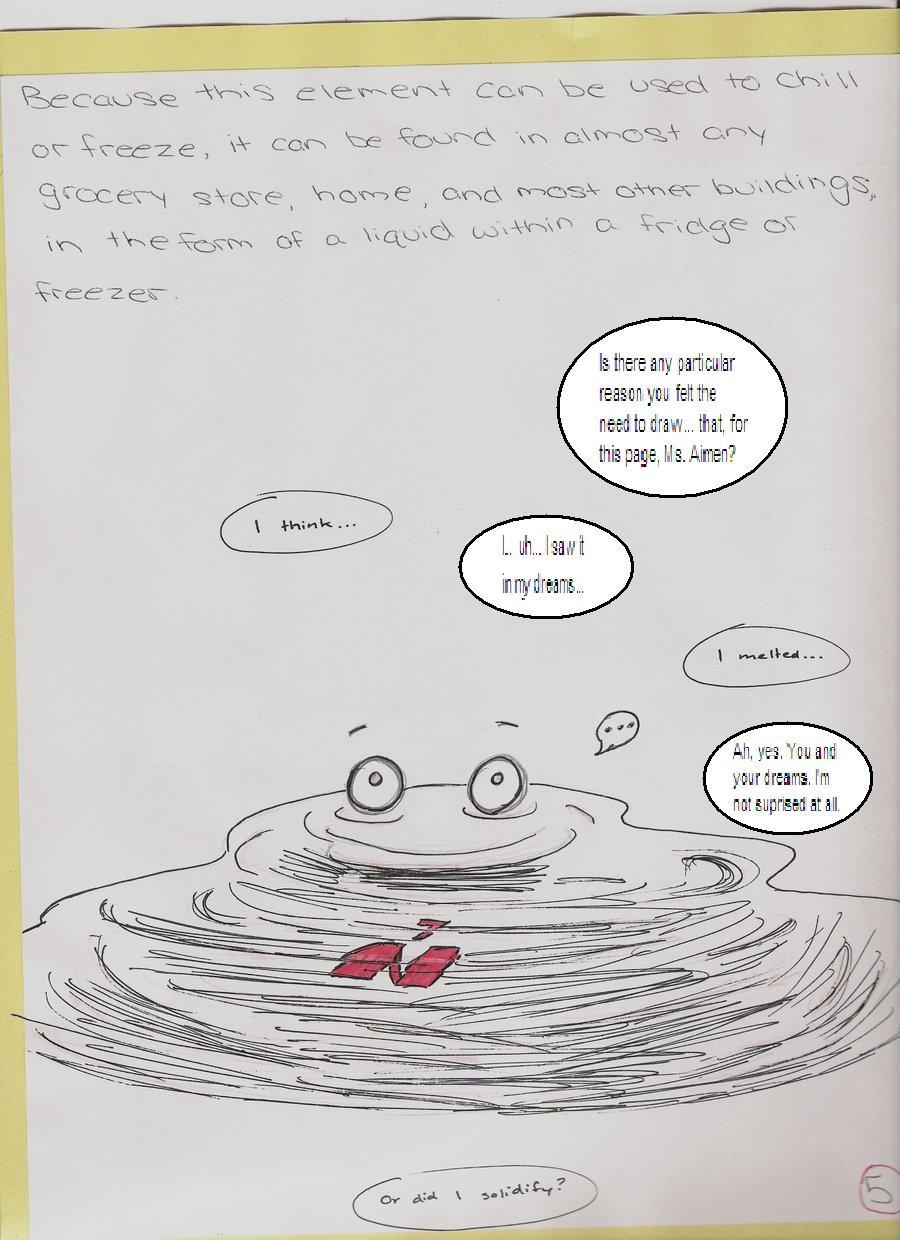 Because this element can be used to chill
or freeze, it can be found in almost any
grocery store, home, and most other buildings,
in the form of a liquid within a fridge or
freezer.
Is there any particular
reason you felt the
need to draw... that, for
this page, Ms. Aimen?
I think...
I... uh... I saw it
in my dreams...
I melted...
...
Ah, yes. You and
your dreams. I'm
not suprised at all.
Or did I solidify?
5